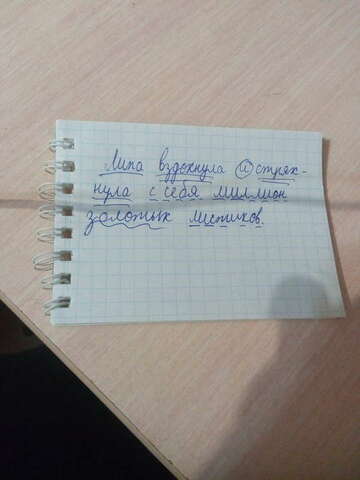 Липа вздохнула и стрях-
нула с себя миллион
золотых листиков.